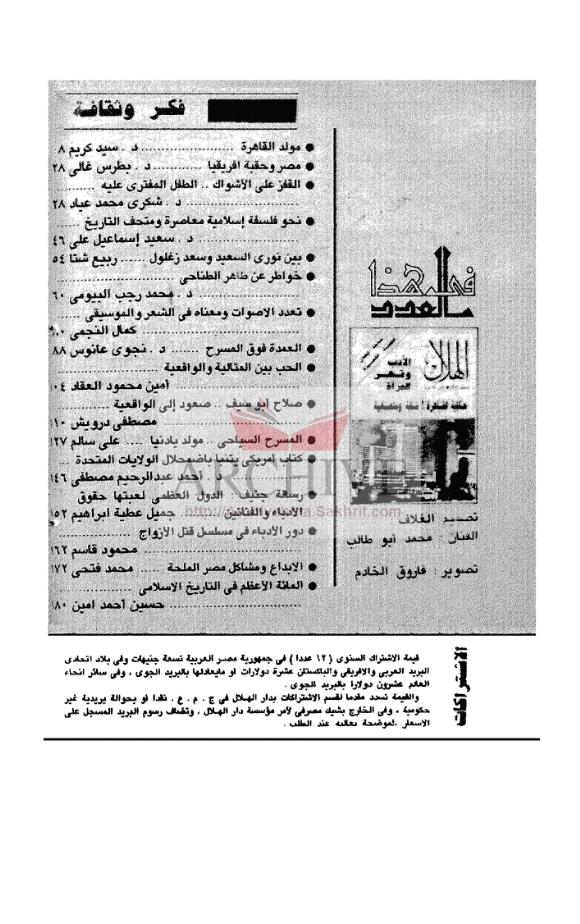 فكر وثقافة
● مولد القاهرة ...................... د . سيد كريم ٨
● مصر وحقبة افريقيا .............. د . بطرس غالى ٢٨
● القفز على الأشواك .. الطفل المفترى عليه ..........
.......................... د . شكرى محمد عياد ٢٨
● نحو فلسفة إسلامية معاصرة ومتحف التاريخ ......
........................ د . سعيد إسماعيل على ٤٦
● بين نورى السعيد وسعد زغلول ...... ربيع شتا ٥٤
● خواطر عن طاهر الطناحى ......................
........................ د . محمد رجب البيومى ٦٠
● تعدد الاصوات ومعناه فى الشعر والموسيقى ......
.................................. كمال النجمى
● العمدة فوق المسرح ....... د . نجوى عانوس ٨٨
● الحب بين المثالية والواقعية ......................
.............................. أمين محمود العقاد ١٠٤
● صلاح أبو سيف .. صعود إلى الواقعية ............
.................................. مصطفى درويش ١١٠
● المسرح السياحى .. مولد يادنيا .... على سالم ١٢٧
● كتاب أمريكى يتنبأ باضمحلال الولايات المتحدة ...
........................ د . احمد عبدالرحيم مصطفى ١٤٦
● رسالة جنيف : الدول العظمى لعبتها حقوق
الأدباء والفنانين ............ جميل عطية ابراهيم ١٥٢
● دور الأدباء فى مسلسل قتل الأزواج ..............
.................................. محمود قاسم ١٦٢
● الابداع ومشاكل مصر الملحة ...... محمد فتحى ١٧٢
● المائة الأعظم فى التاريخ الاسلامى ..............
.............................. حسين أحمد امين ١٨٠
فى هذا
العدد
الهلال
الأدب
وتحرر
المرأة
تصميم الغلاف
الفنان : محمد أبو طالب
تصوير : فاروق الخادم
ARCHIVE
Sakhrit.com
الاشتراكات
قيمة الاشتراك السنوى ( ١٢ عددا ) فى جمهورية مصر العربية تسعة جنيهات وفى بلاد اتحادى
البريد العربى والافريقى والباكستان عشرة دولارات او مايعادلها بالبريد الجوى . وفى سائر انحاء
العالم عشرون دولارا بالبريد الجوى .
والقيمة تسدد مقدما لقسم الاشتراكات بدار الهلال فى ج . م . ع . نقدا او بحوالة بريدية غير
حكومية . وفى الخارج بشيك مصرفى لأمر مؤسسة دار الهلال . وتضاف رسوم البريد المسجل على
الاسعار الموضحة بعاليه عند الطلب .